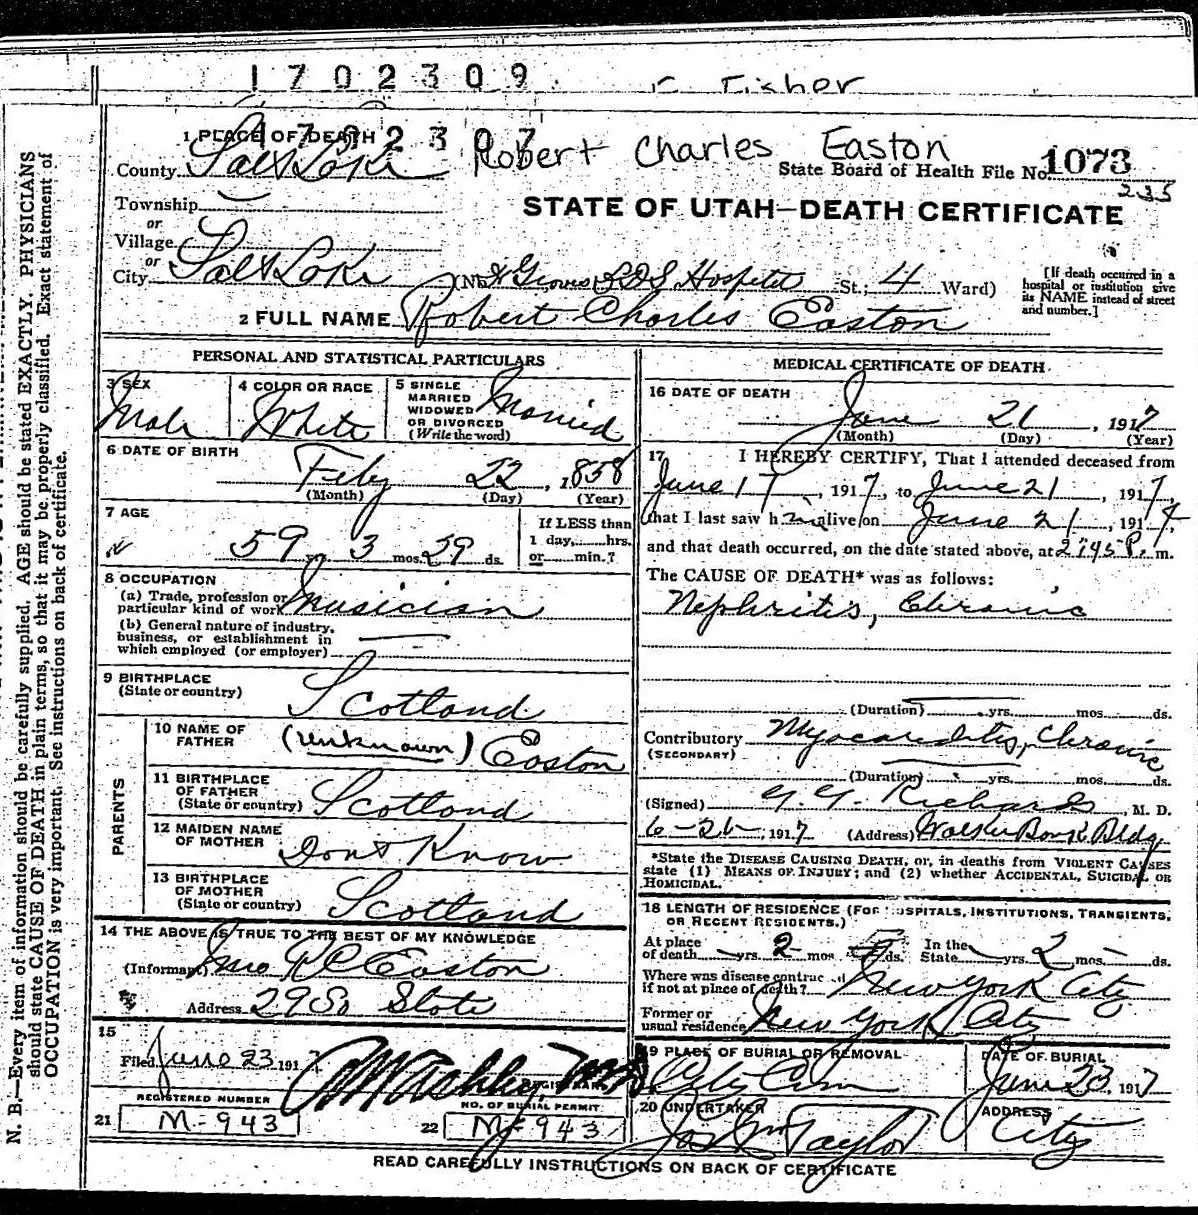 1702309
F. Fisher
1 PLACE OF DEATH 1702307 Robert Charles Easton
County Salt Lake State Board of Health File No. 1073
235
Township
or
Village
STATE OF UTAH—DEATH CERTIFICATE
or
City Salt Lake (No. Groves LDS Hospital St.; 4 Ward)
[If death occurred in a
hospital or institution give
its NAME instead of street
and number.]
2 FULL NAME Robert Charles Easton
PERSONAL AND STATISTICAL PARTICULARS
3 SEX
Male
4 COLOR OR RACE
White
5 SINGLE
MARRIED
WIDOWED
OR DIVORCED
(Write the word)
Married
6 DATE OF BIRTH
Feby 22, 1858
(Month) (Day) (Year)
7 AGE
59 yrs. 3 mos. 29 ds.
If LESS than
1 day, hrs.
or min.?
8 OCCUPATION
(a) Trade, profession or
particular kind of work Musician
(b) General nature of industry,
business, or establishment in
which employed (or employer)
9 BIRTHPLACE
(State or country) Scotland
PARENTS
10 NAME OF
FATHER (unknown) Easton
11 BIRTHPLACE
OF FATHER
(State or country) Scotland
12 MAIDEN NAME
OF MOTHER Dont Know
13 BIRTHPLACE
OF MOTHER
(State or country) Scotland
14 THE ABOVE IS TRUE TO THE BEST OF MY KNOWLEDGE
(Informant) Mrs R C Easton
Address 29 So State
15
Filed June 23 1917
REGISTRAR
REGISTERED NUMBER
21 M-943
NO. OF BURIAL PERMIT.
22 M-943
MEDICAL CERTIFICATE OF DEATH
16 DATE OF DEATH
June 21, 1917
(Month) (Day) (Year)
17 I HEREBY CERTIFY, That I attended deceased from
June 17, 1917, to June 21, 1917,
that I last saw him alive on June 21, 1917,
and that death occurred, on the date stated above, at 2:45 P. m.
The CAUSE OF DEATH* was as follows:
Nephritis, Chronic
(Duration) yrs. mos. ds.
Contributory Myocarditis, Chronic
(SECONDARY)
(Duration) yrs. mos. ds.
(Signed) G. G. Richards, M. D.
6-21-, 1917 (Address) Walker Bank Bldg
*State the DISEASE CAUSING DEATH, or, in deaths from VIOLENT CAUSES
state (1) MEANS OF INJURY; and (2) whether ACCIDENTAL, SUICIDAL OR
HOMICIDAL.
18 LENGTH OF RESIDENCE (FOR HOSPITALS, INSTITUTIONS, TRANSIENTS,
OR RECENT RESIDENTS.)
At place
of death yrs. 2 mos. ds. In the
State yrs. 2 mos. ds.
Where was disease contracted
if not at place of death? New York City
Former or
usual residence New York City
19 PLACE OF BURIAL OR REMOVAL
City Cem
DATE OF BURIAL
June 23, 1917
20 UNDERTAKER
Jos Wm Taylor
ADDRESS
City
READ CAREFULLY INSTRUCTIONS ON BACK OF CERTIFICATE
N. B.—Every item of information should be carefully supplied. AGE should be stated EXACTLY. PHYSICIANS
should state CAUSE OF DEATH in plain terms, so that it may be properly classified. Exact statement of
OCCUPATION is very important. See instructions on back of certificate.